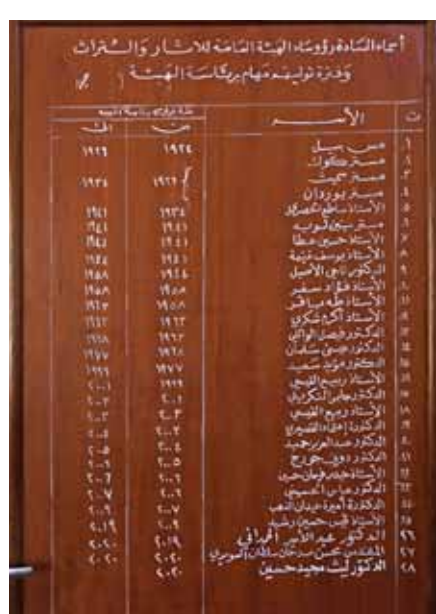 أسماء السادة رؤوساء الهيئة العامة للآثار والتراث
وفترة توليهم مهام برئاسة الهيئة
ت الأســم من الى
١ مس بيل ١٩٢٤ ١٩٢٦
٢ مستر كوك
٣ مستر سميث ١٩٢٦ ١٩٣٤
٤ مستر يوردان
٥ الأستاذ ساطع الحصري ١٩٣٤ ١٩٤١
٦ مستر سيتن لويد ١٩٤١ ١٩٤١
٧ الأستاذ حسين عطا ١٩٤١ ١٩٤١
٨ الأستاذ يوسف غنيمة ١٩٤١ ١٩٤٤
٩ الدكتور ناجي الأصيل ١٩٤٤ ١٩٥٨
١٠ الأستاذ فؤاد سفر ١٩٥٨ ١٩٥٨
١١ الأستاذ طه باقر ١٩٥٨ ١٩٦٣
١٢ الأستاذ أكرم شكري ١٩٦٣ ١٩٦٣
١٣ الدكتور فيصل الوائلي ١٩٦٣ ١٩٦٨
١٤ الدكتور عيسى سلمان ١٩٦٨ ١٩٧٧
١٥ الدكتور مؤيد سعيد ١٩٧٧ ١٩٩٩
١٦ الأستاذ ربيع القيسي ١٩٩٩ ٢٠٠١
١٧ الدكتور جابر التكريتي ٢٠٠١ ٢٠٠٣
١٨ الأستاذ ربيع القيسي ٢٠٠٣ ٢٠٠٣
١٩ الدكتورة
٢٠ الدكتور عبد العزيز حميد ٢٠٠٤ ٢٠٠٥
٢١ الدكتور دوني جورج ٢٠٠٥ ٢٠٠٦
٢٢ الأستاذ حيدر فرحان حسين ٢٠٠٦ ٢٠٠٦
٢٣ الدكتور عباس الحسيني ٢٠٠٦ ٢٠٠٧
٢٤ الدكتورة أميرة عيدان الذهب ٢٠٠٧ ٢٠٠٩
٢٥ الأستاذ قيس حسين رشيد ٢٠٠٩ ٢٠١٩
٢٦ الدكتور عبد الأمير الحمداني ٢٠١٩ ٢٠٢٠
٢٧ المهندس محسن سرحان سلطان ٢٠٢٠ ٢٠٢٠
٢٨ الدكتور ليث مجيد حسين ٢٠٢٠